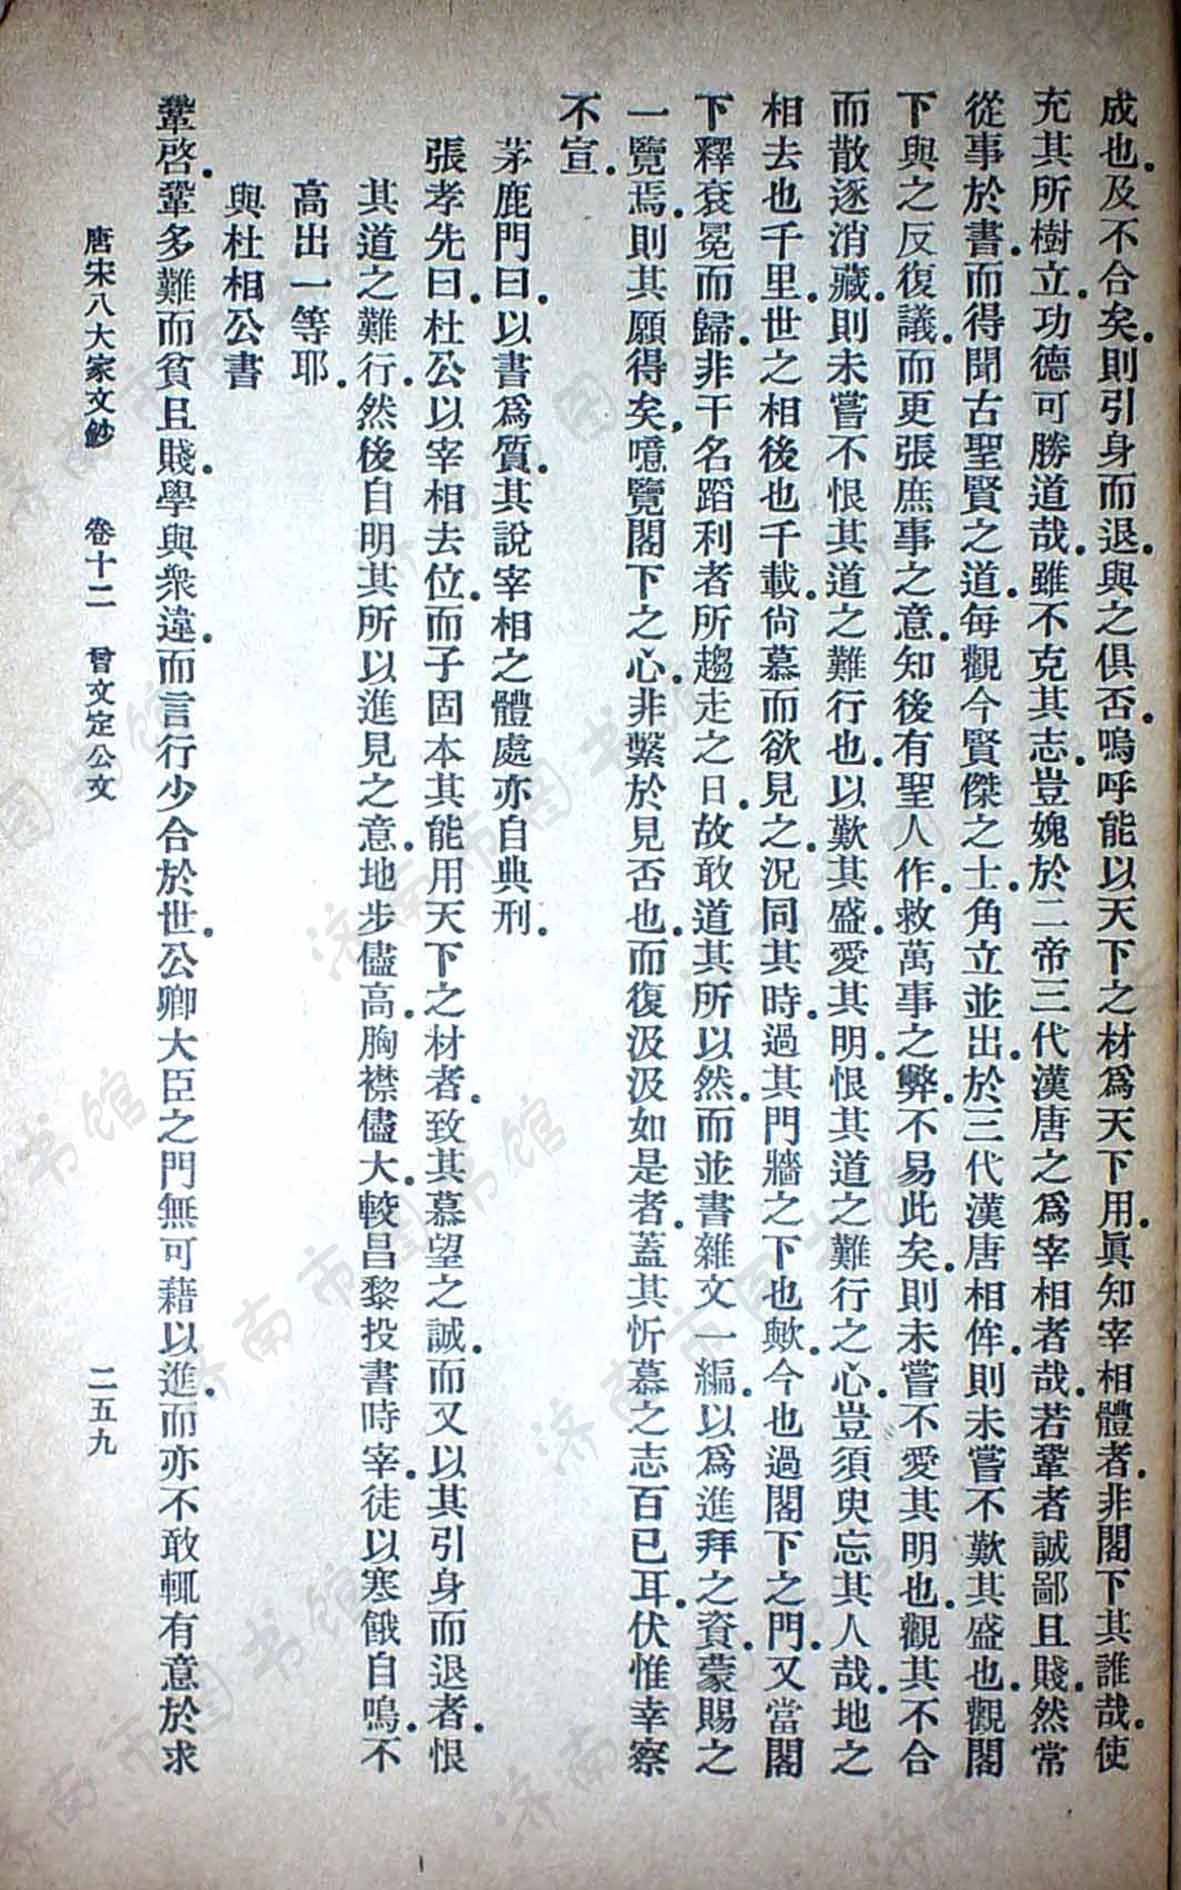 成也.及不合矣.則引身而退.與之俱否.嗚呼能以天下之材爲天下用.眞知宰相體者.非閣下其誰哉.使
充其所樹立.功德可勝道哉.雖不克其志.豈媿於二帝三代漢唐之爲宰相者哉.若鞏者誠鄙且賤.然常
從事於書.而得聞古聖賢之道.每觀今賢傑之士.角立並出.於三代漢唐相侔.則未嘗不歎其盛也.觀閣
下與之反復議.而更張庶事之意.知後有聖人作.救萬事之弊.不易此矣.則未嘗不愛其明也.觀其不合
而散逐消藏.則未嘗不恨其道之難行也.以歎其盛.愛其明.恨其道之難行之心.豈須臾忘其人哉.地之
相去也千里.世之相後也千載.尙慕而欲見之.況同其時.過其門牆之下也歟.今也過閣下之門.又當閣
下釋袞冕而歸.非干名蹈利者所趨走之日.故敢道其所以然.而並書雜文一編.以爲進拜之資.蒙賜之
一覽焉.則其願得矣.噫覽閣下之心.非繫於見否也.而復汲汲如是者.蓋其忻慕之志百已耳.伏惟幸察
不宣.
茅鹿門曰.以書爲質.其說宰相之體處亦自典刑.
張孝先曰.杜公以宰相去位.而子固本其能用天下之材者.致其慕望之誠.而又以其引身而退者.恨
其道之難行.然後自明其所以進見之意.地步儘高.胸襟儘大.較昌黎投書時宰.徒以寒餓自鳴.不
高出一等耶.
與杜相公書
鞏啓.鞏多難而貧且賤.學與衆違.而言行少合於世.公卿大臣之門無可藉以進.而亦不敢輒有意於求
唐宋八大家文鈔 卷十二 曾文定公文 二五九
济南市图书馆